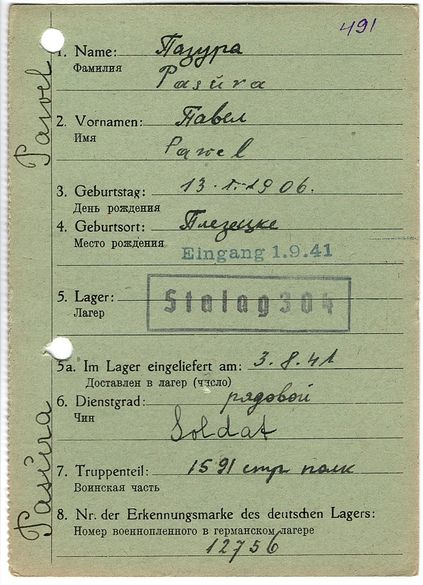 491
1. Name: Пазура
Фамилия Pasura
2. Vornamen: Павел
Имя Pawel
3. Geburtstag: 13.1.1906.
День рождения
4. Geburtsort: Плезецке
Место рождения
Eingang 1.9.41
5. Lager: Stalag 304
Лагер
5a. Im Lager eingeliefert am: 3.8.41
Доставлен в лагер (число)
6. Dienstgrad: рядовой
Чин Soldat
7. Truppenteil: 1591 стр полк
Воинская часть
8. Nr. der Erkennungsmarke des deutschen Lagers:
Номер военнопленного в германском лагере
12756
Pawel
Pasura